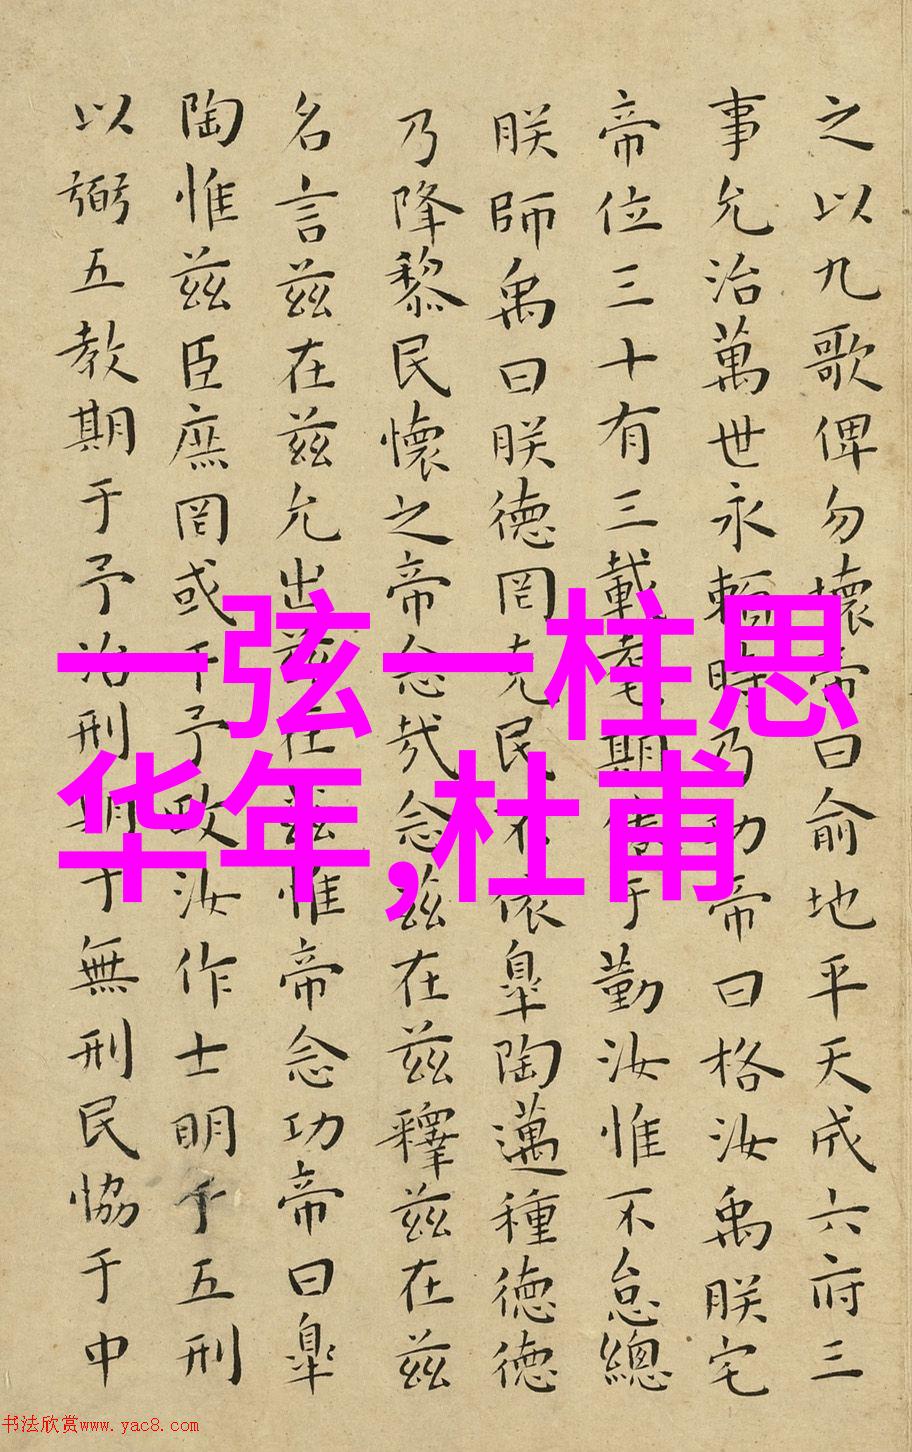 之以九歌俾勿壞帝曰俞地平天成六府三
事允治萬世永賴時乃功帝曰格汝禹朕宅
帝位三十有三載耄期倦于勤汝惟不怠總
朕師禹曰朕德罔克民不依臯陶邁種德德
乃降黎民懷之帝念哉念茲在茲釋茲在茲
名言茲在茲允出茲在茲惟帝念功帝曰臯
陶惟茲臣庶罔或干予政汝作士明于五刑
以弼五教期于予治刑期于無刑民協于中
一弦一柱思
华年,杜甫
书法欣赏www.yac8.com